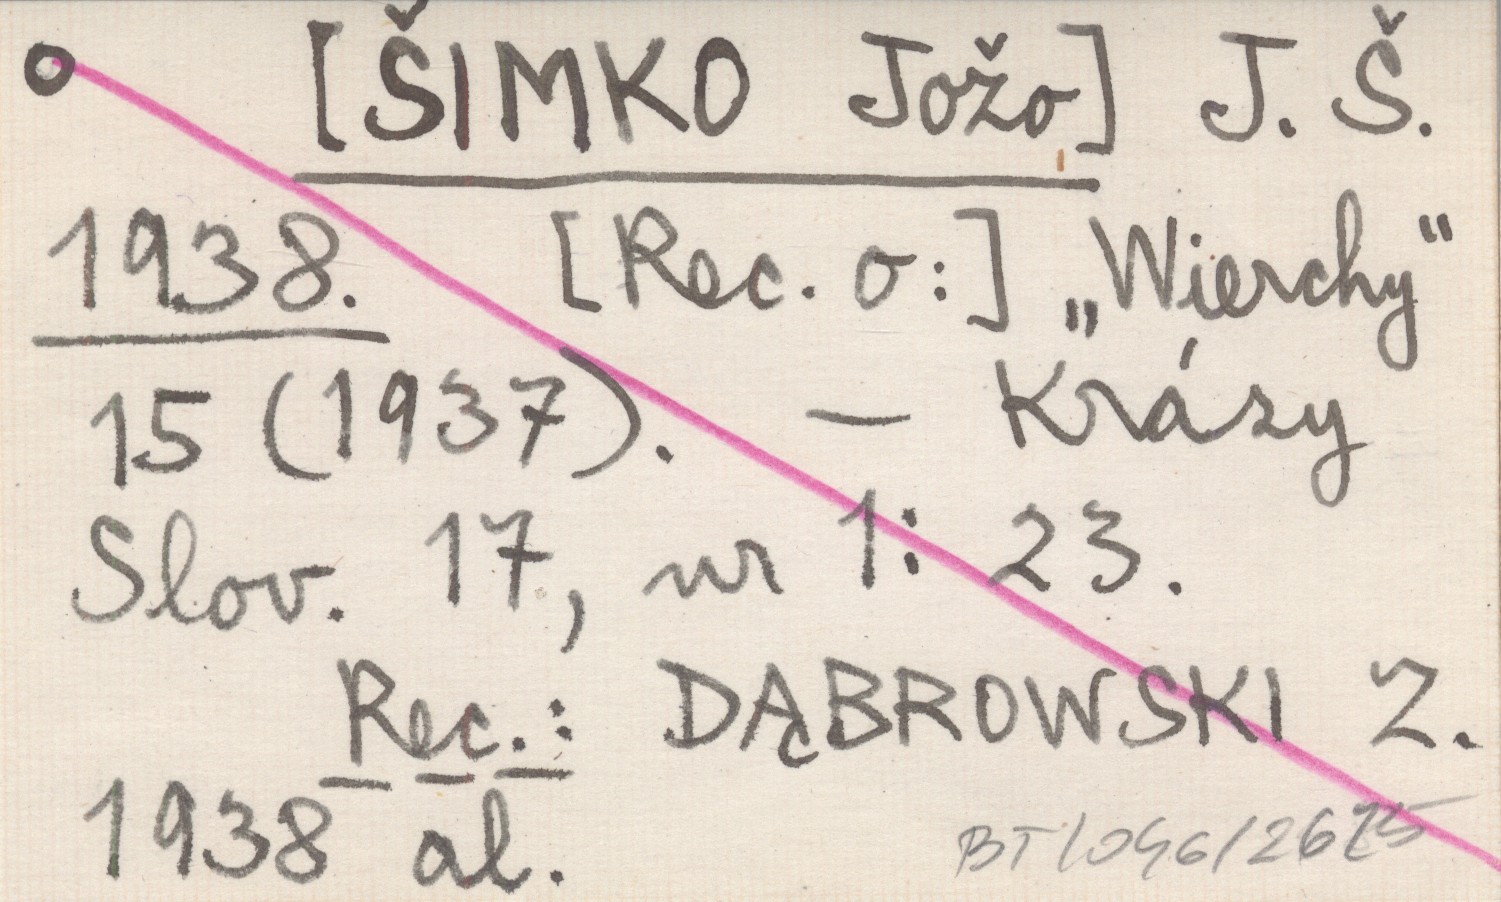 [ŠIMKO Jožo] J. Š.
1938. [Rec. o:] „Wierchy“
15 (1937). — Krázy
Slov. 17, nr 1: 23.
Rec.: DĄBROWSKI Z.
1938 al.